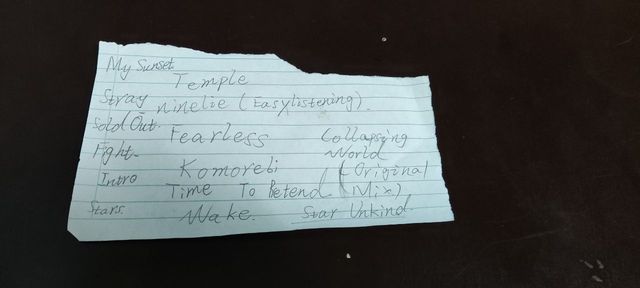 My Sunset
Temple
Stray ninelie (Easylistening).
Sold Out Fearless Collapsing
Fight World
Intro Komorebi (Original
Time To Betend Mix)
Stars. Wake. Star Unkind